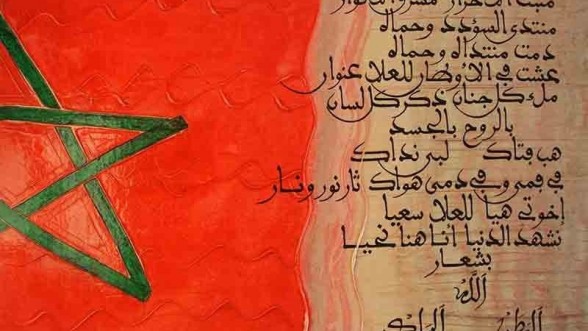 منبت الأحرار مشرق الأنوار
منتدى السؤدد وحماه
دمت منتداه وحماه
عشت في الأوطان للعلا عنوان
ملء كل جنان ذكر كل لسان
بالروح بالجسد
هب فتاك لبى نداك
في فمي وفي دمي هواك ثار نور ونار
إخوتي هيا للعلا سعيا
نشهد الدنيا أنا هنا نحيا
بشعار
الله
الوطن الملك